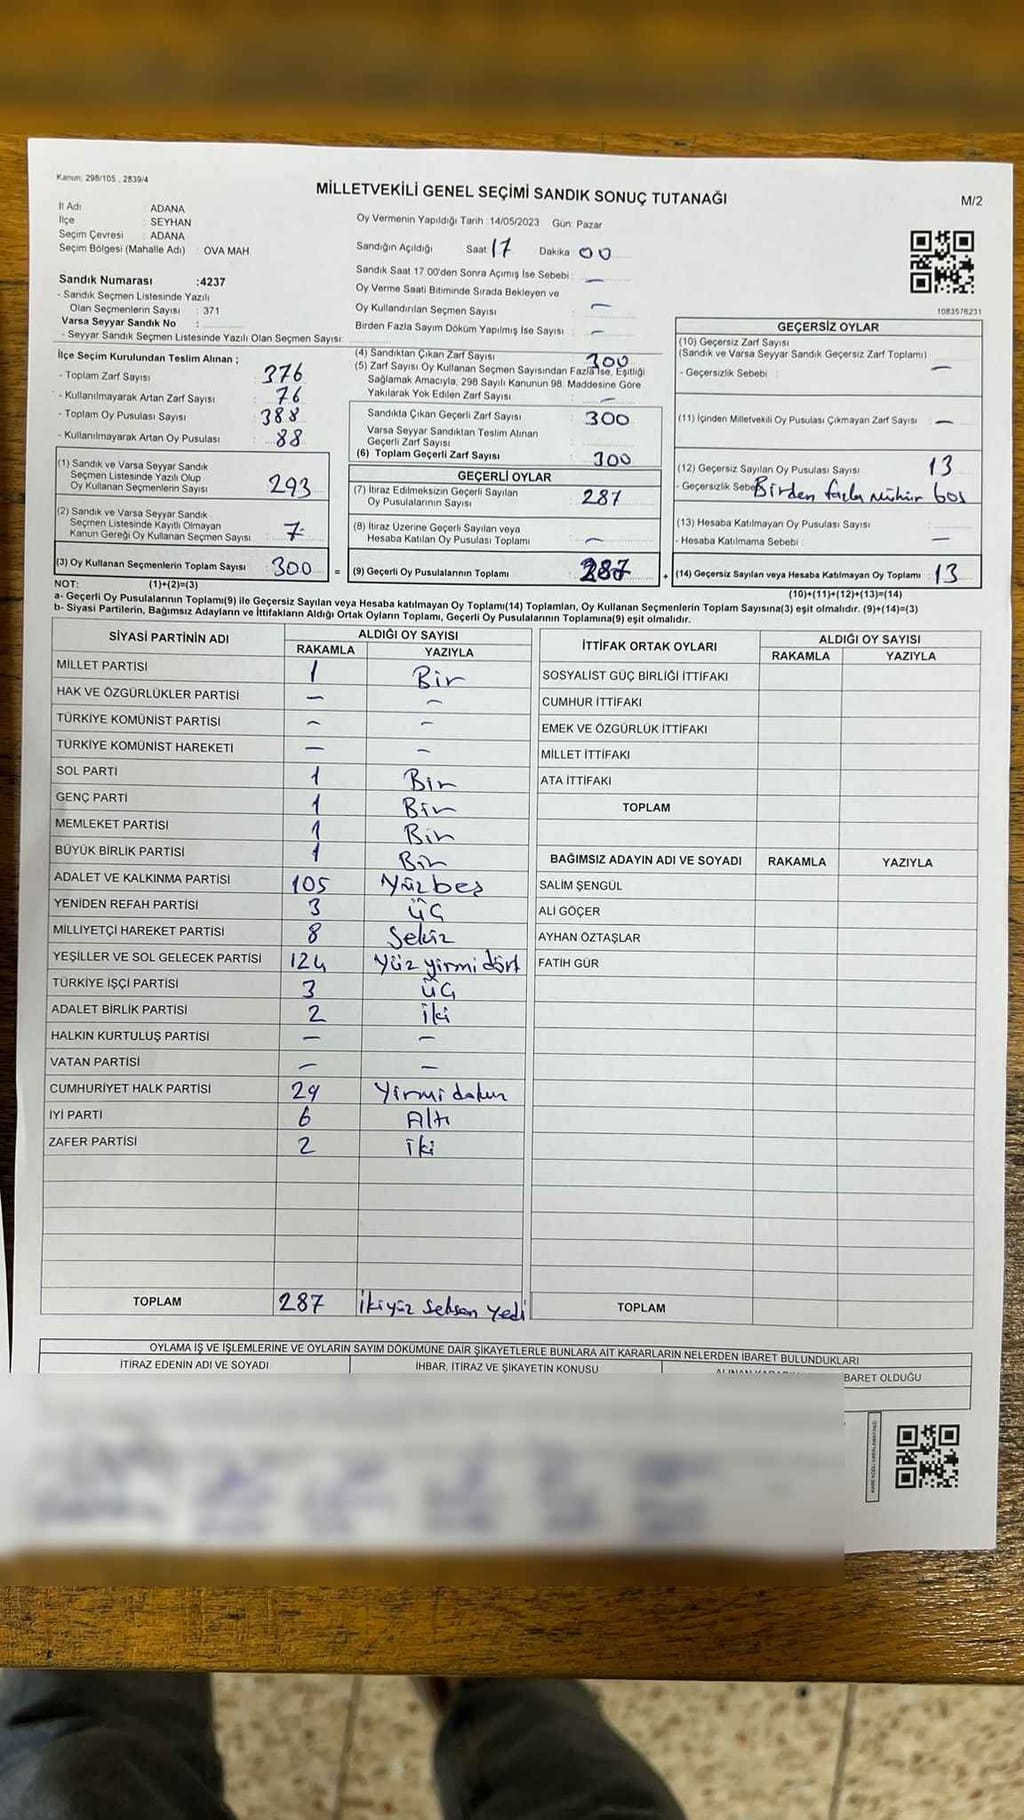 Kanun: 298/105 , 2839/4
MİLLETVEKİLİ GENEL SEÇİMİ SANDIK SONUÇ TUTANAĞI
M/2
İl Adı : ADANA
İlçe : SEYHAN
Seçim Çevresi : ADANA
Seçim Bölgesi (Mahalle Adı) : OVA MAH.
Sandık Numarası :4237
- Sandık Seçmen Listesinde Yazılı
Olan Seçmenlerin Sayısı : 371
Varsa Seyyar Sandık No :
- Seyyar Sandık Seçmen Listesinde Yazılı Olan Seçmen Sayısı:
Oy Vermenin Yapıldığı Tarih : 14/05/2023 Gün: Pazar
Sandığın Açıldığı Saat: 17 Dakika: 00
Sandık Saat 17.00'den Sonra Açımış İse Sebebi : —
Oy Verme Saati Bitiminde Sırada Bekleyen ve
Oy Kullandırılan Seçmen Sayısı : —
Birden Fazla Sayım Döküm Yapılmış İse Sayısı : —
1083576231
İlçe Seçim Kurulundan Teslim Alınan ;
- Toplam Zarf Sayısı : 376
- Kullanılmayarak Artan Zarf Sayısı : 76
- Toplam Oy Pusulası Sayısı : 388
- Kullanılmayarak Artan Oy Pusulası : 88
(1) Sandık ve Varsa Seyyar Sandık
Seçmen Listesinde Yazılı Olup
Oy Kullanan Seçmenlerin Sayısı : 293
(2) Sandık ve Varsa Seyyar Sandık
Seçmen Listesinde Kayıtlı Olmayan
Kanun Gereği Oy Kullanan Seçmen Sayısı : 7
(3) Oy Kullanan Seçmenlerin Toplam Sayısı : 300 =
(4) Sandıktan Çıkan Zarf Sayısı : 300
(5) Zarf Sayısı Oy Kullanan Seçmen Sayısından Fazla İse, Eşitliği
Sağlamak Amacıyla, 298 Sayılı Kanunun 98. Maddesine Göre
Yakılarak Yok Edilen Zarf Sayısı : —
Sandıkta Çıkan Geçerli Zarf Sayısı : 300
Varsa Seyyar Sandıktan Teslim Alınan
Geçerli Zarf Sayısı :
(6) Toplam Geçerli Zarf Sayısı : 300
GEÇERLİ OYLAR
(7) İtiraz Edilmeksizin Geçerli Sayılan
Oy Pusulalarının Sayısı : 287
(8) İtiraz Üzerine Geçerli Sayılan veya
Hesaba Katılan Oy Pusulası Toplamı : —
(9) Geçerli Oy Pusulalarının Toplamı : 287 +
GEÇERSİZ OYLAR
(10) Geçersiz Zarf Sayısı
(Sandık ve Varsa Seyyar Sandık Geçersiz Zarf Toplamı) : —
- Geçersizlik Sebebi :
(11) İçinden Milletvekili Oy Pusulası Çıkmayan Zarf Sayısı : —
(12) Geçersiz Sayılan Oy Pusulası Sayısı : 13
- Geçersizlik Sebebi Birden fazla mühür boş
(13) Hesaba Katılmayan Oy Pusulası Sayısı :
- Hesaba Katılmama Sebebi : —
(14) Geçersiz Sayılan veya Hesaba Katılmayan Oy Toplamı : 13
NOT: (1)+(2)=(3)
(10)+(11)+(12)+(13)=(14)
a- Geçerli Oy Pusulalarının Toplamı(9) ile Geçersiz Sayılan veya Hesaba katılmayan Oy Toplamı(14) Toplamları, Oy Kullanan Seçmenlerin Toplam Sayısına(3) eşit olmalıdır. (9)+(14)=(3)
b- Siyasi Partilerin, Bağımsız Adayların ve İttifakların Aldığı Ortak Oyların Toplamı, Geçerli Oy Pusulalarının Toplamına(9) eşit olmalıdır.
SİYASİ PARTİNİN ADI ALDIĞI OY SAYISI
RAKAMLA YAZIYLA
MİLLET PARTİSİ 1 Bir
HAK VE ÖZGÜRLÜKLER PARTİSİ — —
TÜRKİYE KOMÜNİST PARTİSİ — —
TÜRKİYE KOMÜNİST HAREKETİ — —
SOL PARTİ 1 Bir
GENÇ PARTİ 1 Bir
MEMLEKET PARTİSİ 1 Bir
BÜYÜK BİRLİK PARTİSİ 1 Bir
ADALET VE KALKINMA PARTİSİ 105 Yüz beş
YENİDEN REFAH PARTİSİ 3 üç
MİLLİYETÇİ HAREKET PARTİSİ 8 Sekiz
YEŞİLLER VE SOL GELECEK PARTİSİ 124 Yüz yirmi dört
TÜRKİYE İŞÇİ PARTİSİ 3 üç
ADALET BİRLİK PARTİSİ 2 iki
HALKIN KURTULUŞ PARTİSİ — —
VATAN PARTİSİ — —
CUMHURİYET HALK PARTİSİ 29 Yirmi dokuz
İYİ PARTİ 6 Altı
ZAFER PARTİSİ 2 iki
TOPLAM 287 İkiyüz seksen yedi
İTTİFAK ORTAK OYLARI ALDIĞI OY SAYISI
RAKAMLA YAZIYLA
SOSYALİST GÜÇ BİRLİĞİ İTTİFAKI
CUMHUR İTTİFAKI
EMEK VE ÖZGÜRLÜK İTTİFAKI
MİLLET İTTİFAKI
ATA İTTİFAKI
TOPLAM
BAĞIMSIZ ADAYIN ADI VE SOYADI RAKAMLA YAZIYLA
SALİM ŞENGÜL
ALİ GÖÇER
AYHAN ÖZTAŞLAR
FATİH GÜR
TOPLAM
OYLAMA İŞ VE İŞLEMLERİNE VE OYLARIN SAYIM DÖKÜMÜNE DAİR ŞİKAYETLERLE BUNLARA AİT KARARLARIN NELERDEN İBARET BULUNDUKLARI
İTİRAZ EDENİN ADI VE SOYADI İHBAR, İTİRAZ VE ŞİKAYETİN KONUSU BARET OLDUĞU